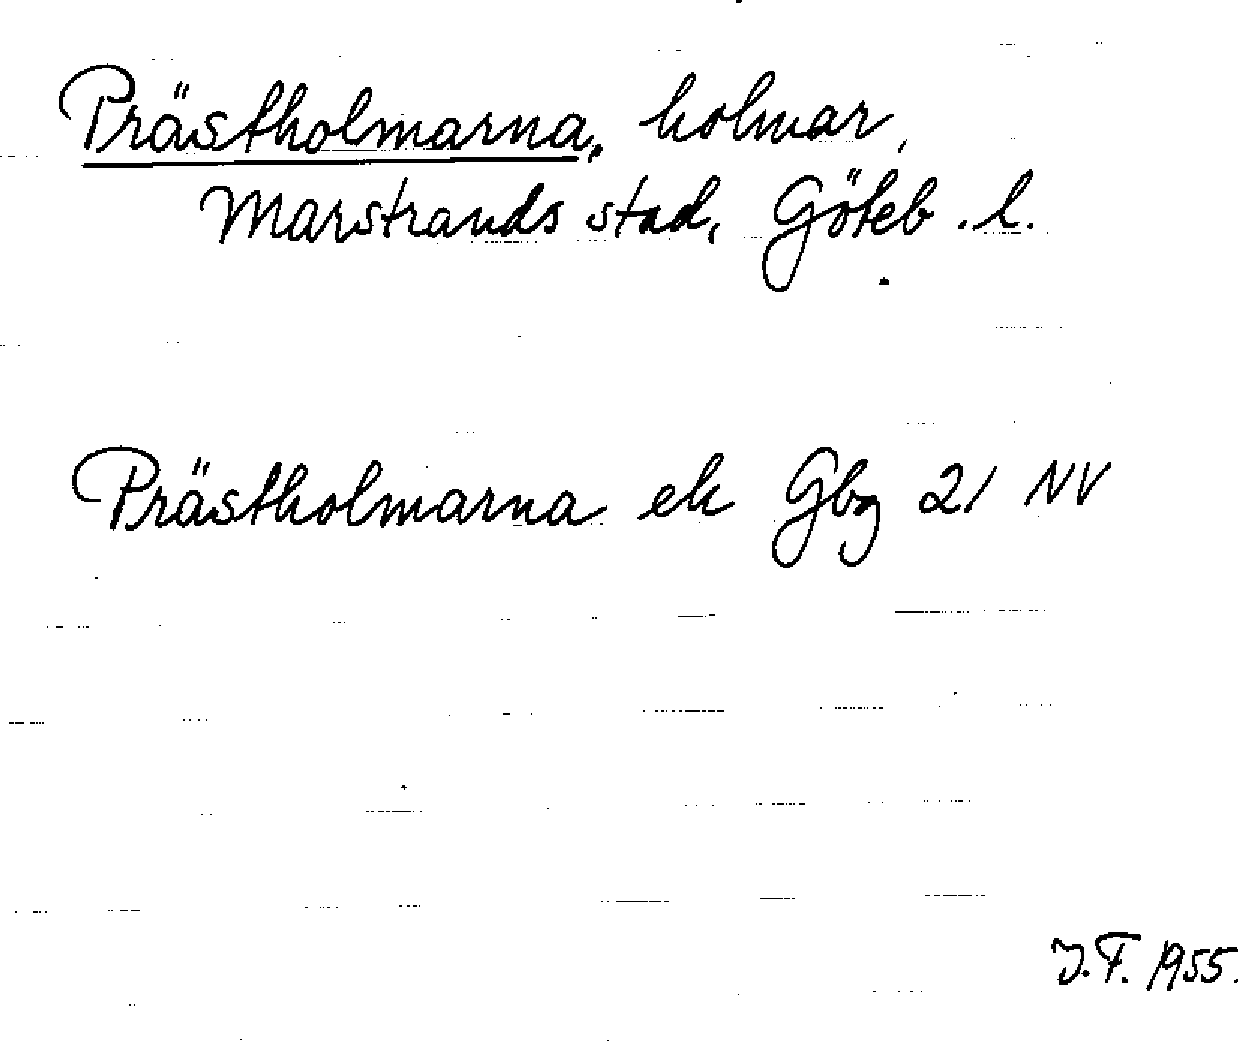 Prästholmarna, holmar,
Marstrands stad, Göteb. l.
Prästholmarna ek Gbg 21 NV
J.F. 1955.